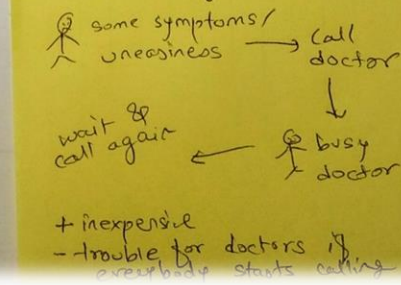 some symptoms/
uneasiness
call
doctor
busy
doctor
wait &
call again
+ inexpensive
- trouble for doctors if
everybody starts calling